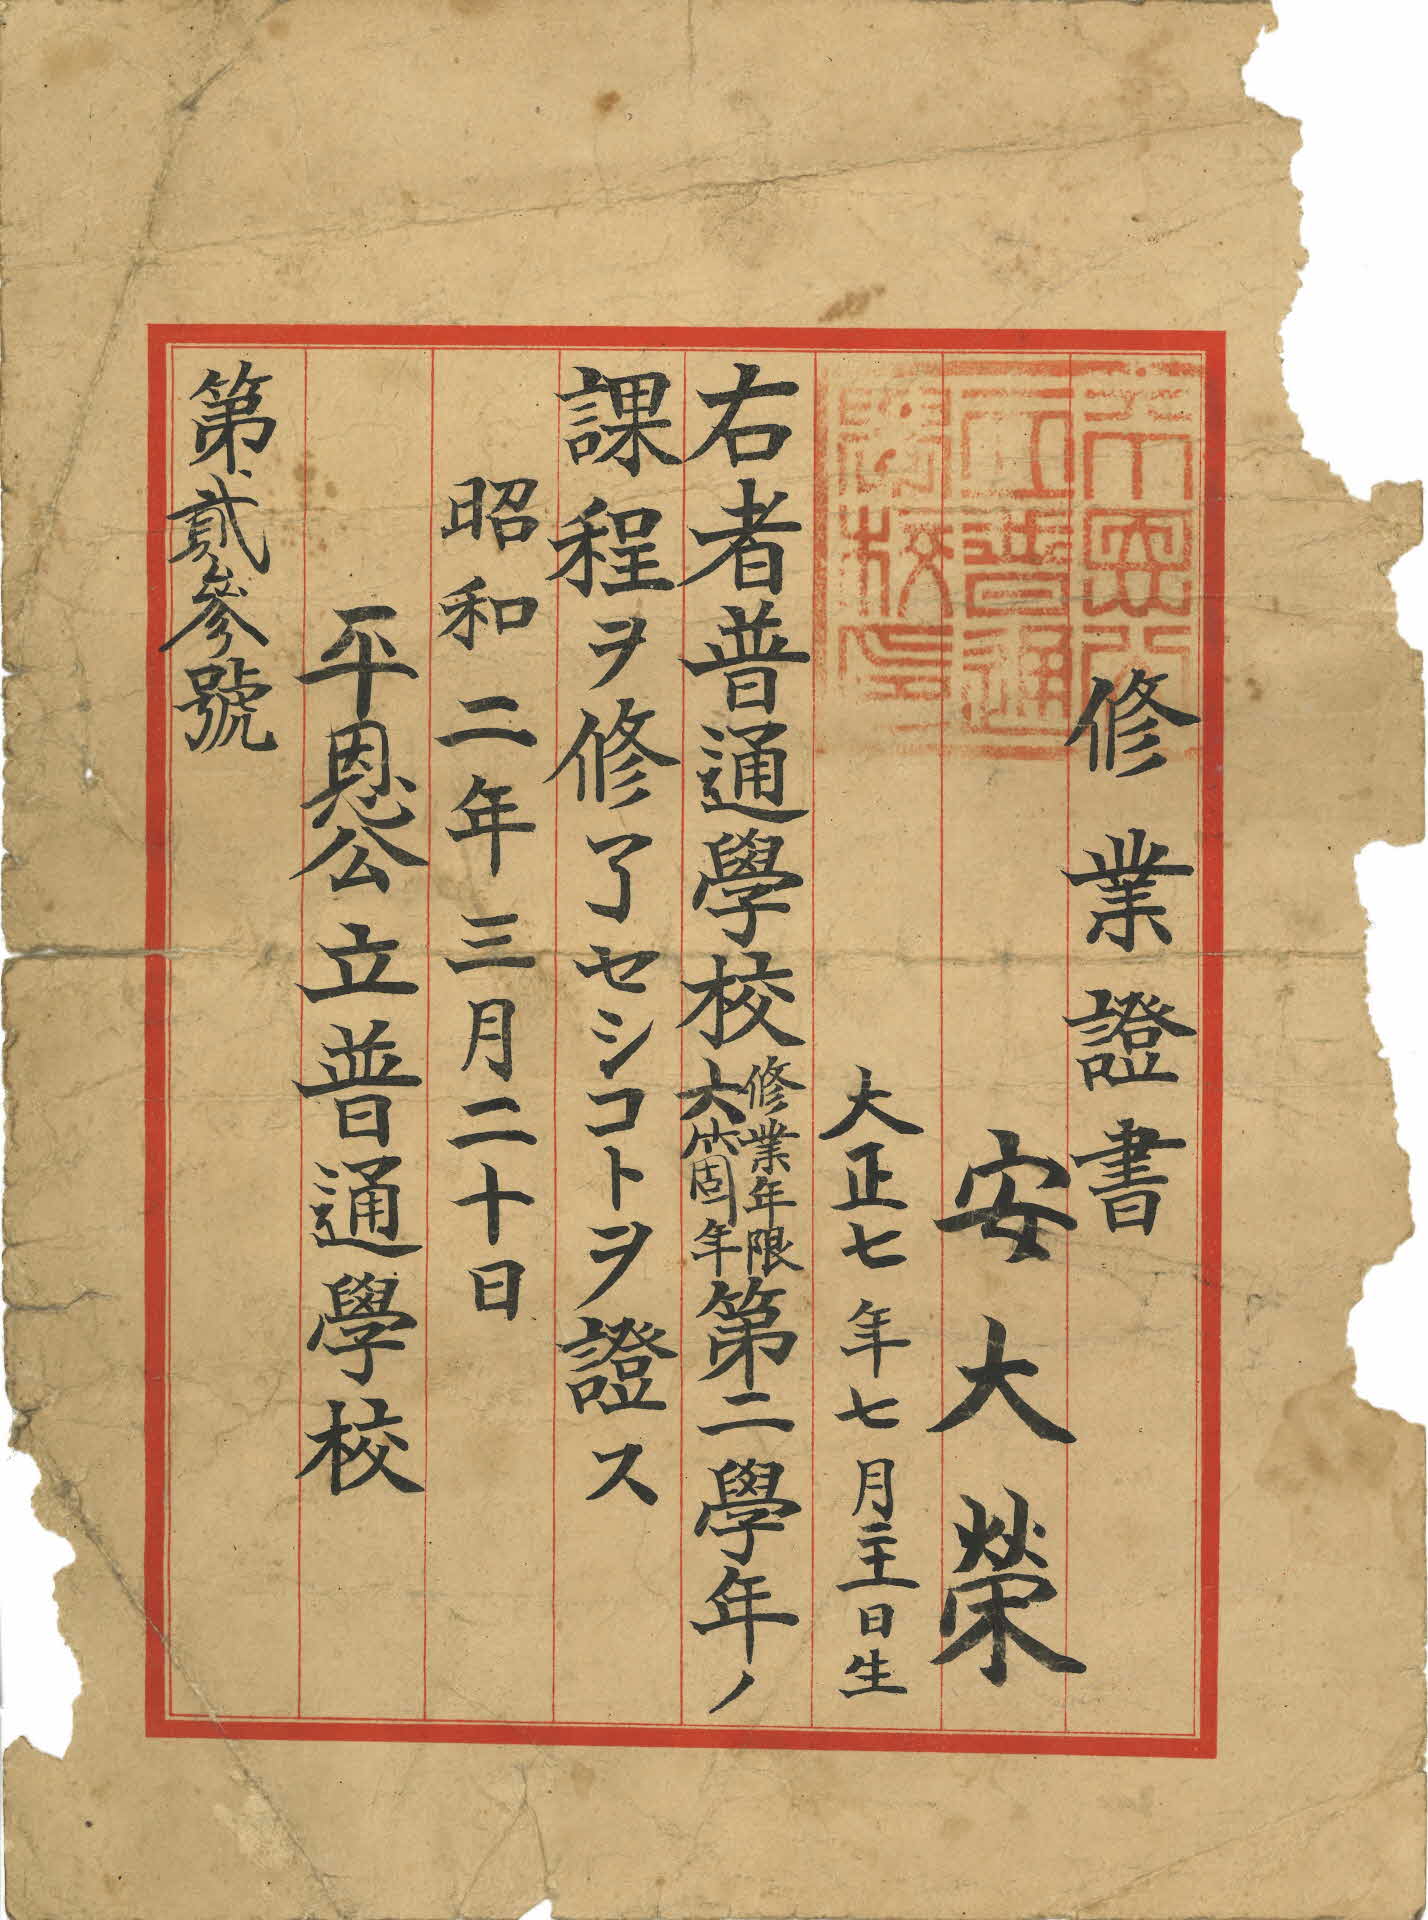 平恩公
立普通
學校印
修業證書
安大榮
大正七年七月日生
右者普通學校修業年限六箇年第二學年ノ
課程ヲ修了セシコトヲ證ス
昭和二年三月二十日
平恩公立普通學校
第貳參號